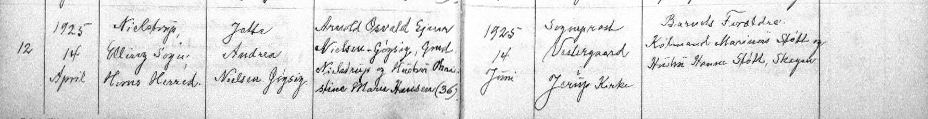 12
1925
14
April
Nielstrup,
Elling Sogn
Horns Herred.
Jytte
Andrea
Nielsen Gøgsig
Arnold Osvald Ejner
Nielsen-Gøgsig, Gmd
Nielstrup og Hustru Chri-
stine Marie Hansen (36)
1925
14
Juni
Sogneprest
Vestergaard
Jerup Kirke
Barnets Forældre.
Købmand Marinus Støtt og
Hustru Hanne Støtt, Skagen